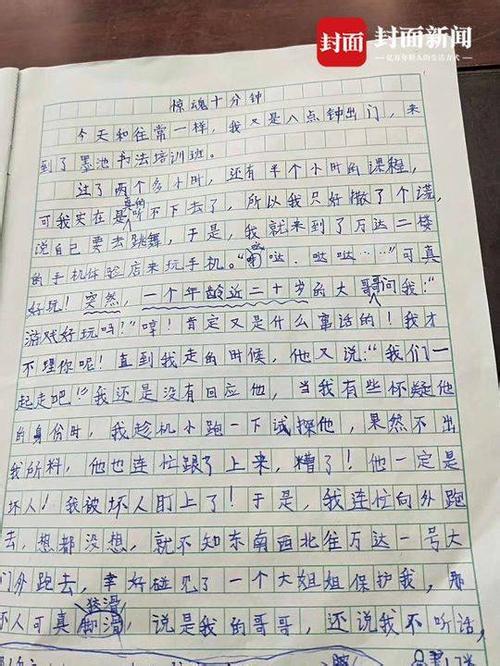 封面 封面新闻
亿万年轻人的生活方式
惊魂十分钟
今天和往常一样，我又是八点钟出门，来
到了墨池书法培训班。
过了两个多小时，还有半个小时的课程，
真的
可我实在是听不下去了，所以我只好撒了个谎，
说自己要去跳舞，于是，我就来到了万达二楼
的手机体验店来玩手机。“哒，哒哒……”可真
好玩！突然，一个年龄近二十岁的大哥哥问我：“
游戏好玩吗？”哼！肯定又是什么事话的！我才
不理你呢！直到我走的时候，他又说：“我们一
起走吧！”我还是没有回应他，当我有些怀疑他
的身份时，我趁机小跑一下试探他，果然不出
我所料，他也连忙跟了上来，糟了！他一定是
坏人！我被坏人盯上了！于是，我连忙向外跑
去，想都没想，就不知东南西北往万达一号大
门外跑去，幸好碰见了一个大姐姐保护我，那
狡滑
坏人可真脚滑，说是我的哥哥，还说我不听话，